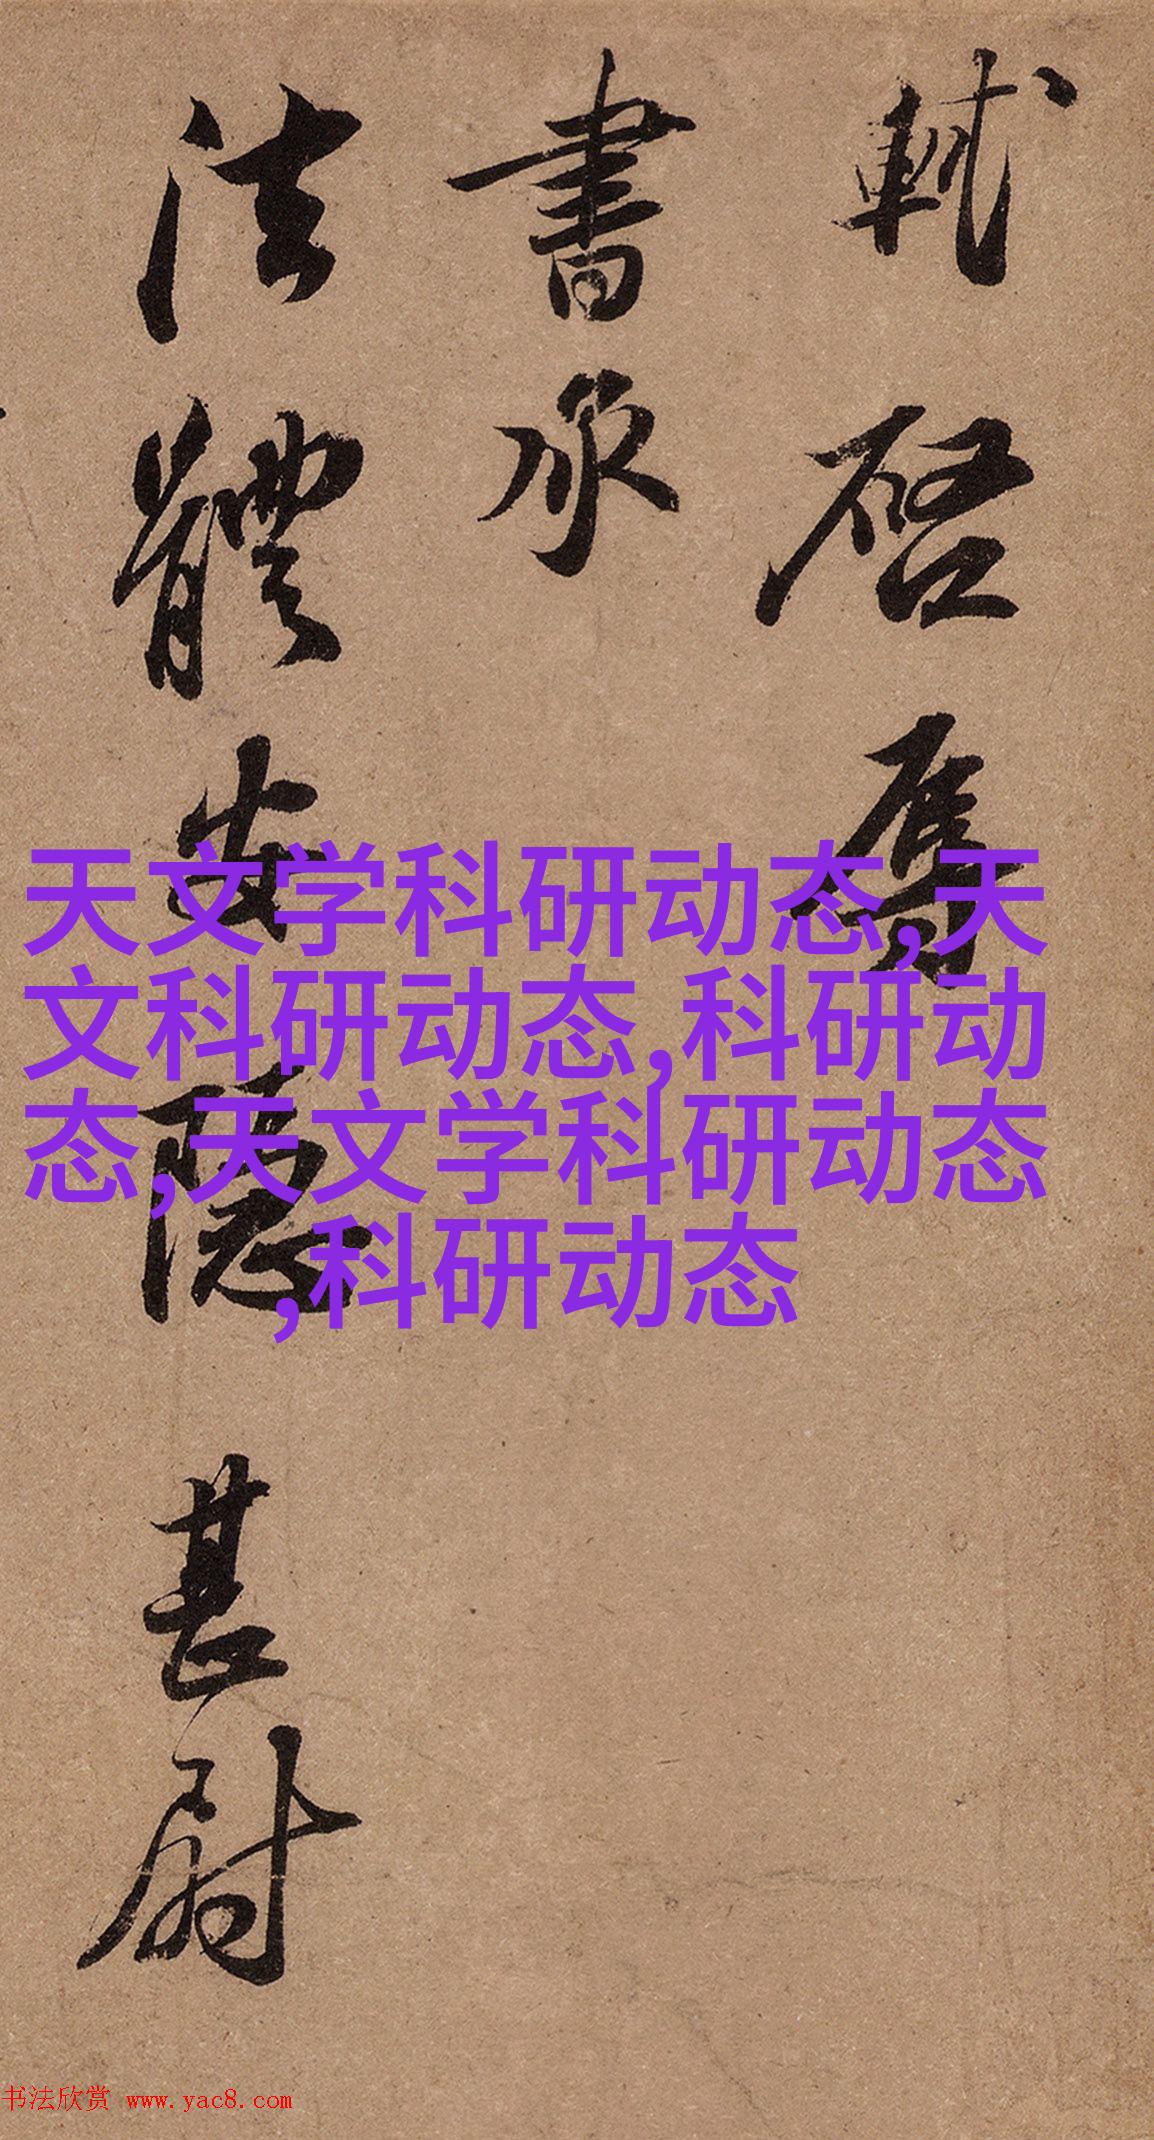 軾啓辱
書承
法體安隱甚尉
天文学科研动态,天
文科研动态,科研动
态,天文学科研动态
,科研动态
书法欣赏 www.yac8.com